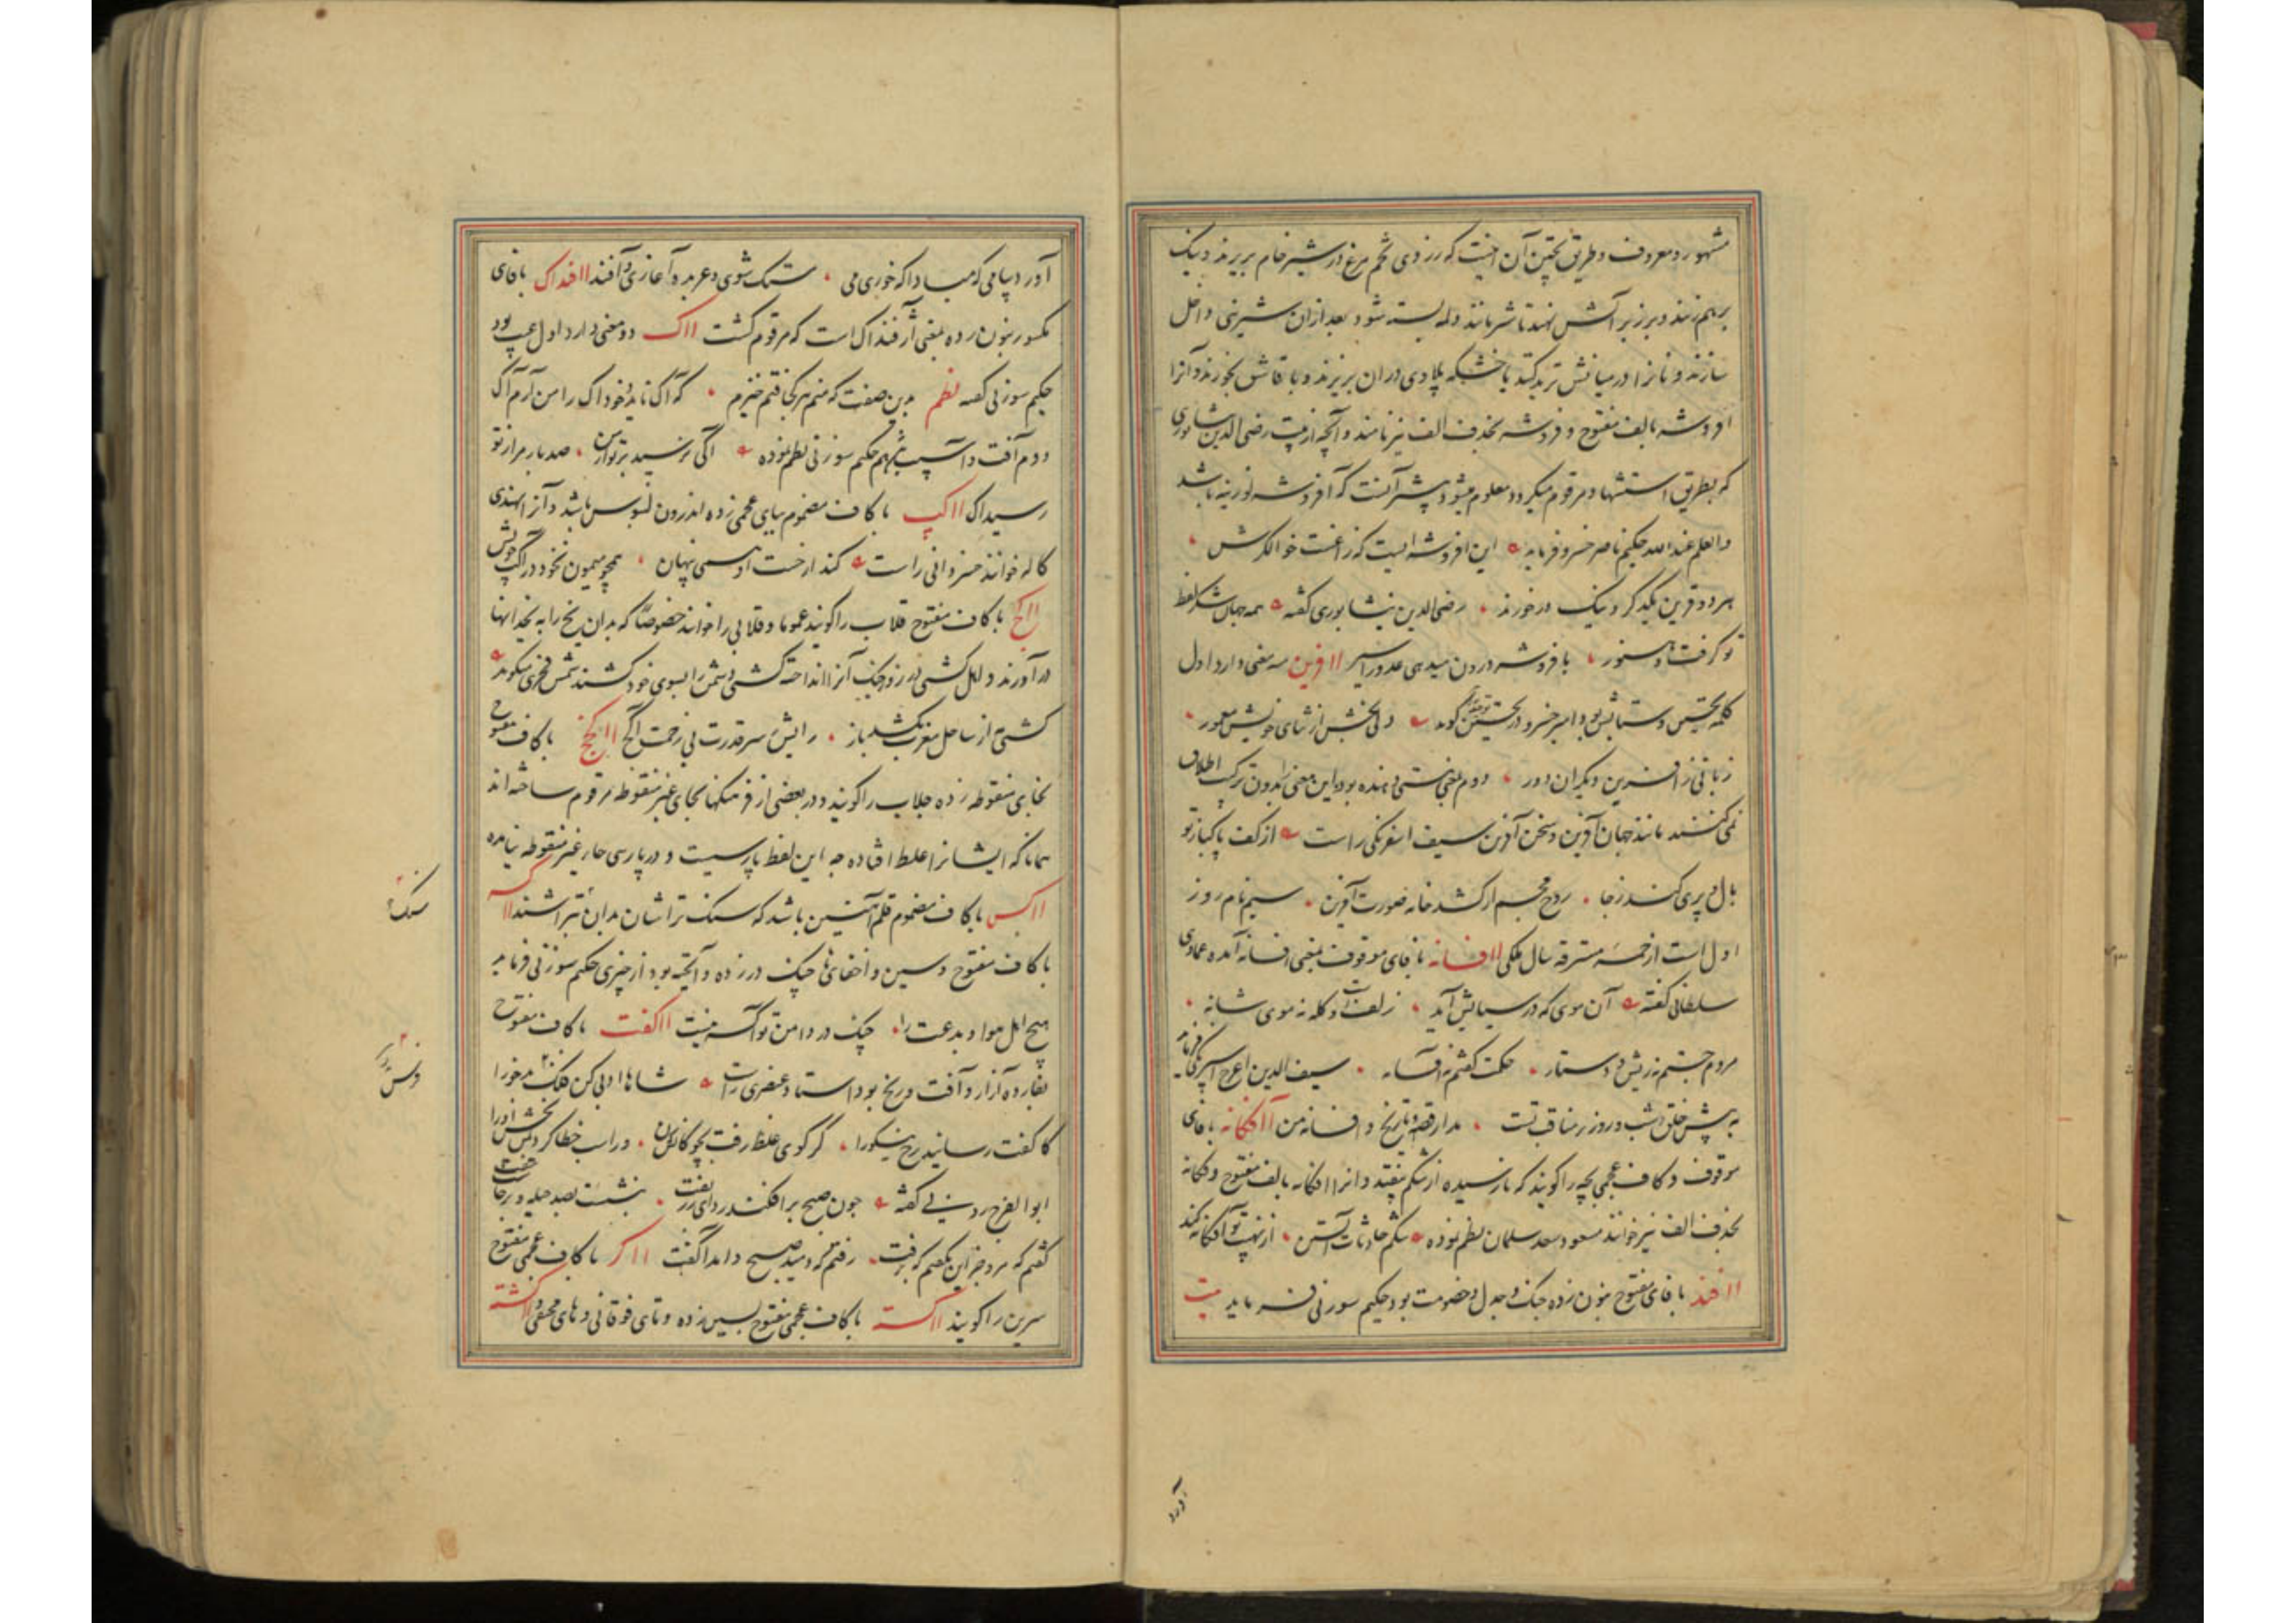 مشهور و معروف و طریق پختن آن اینست که زردی تخم مرغ در شیر خام بریزند و نیک
برهم زنند و بر زبر آتش نهند تا شیر مانند دلمه بسته شود بعد ازان شیرینی داخل
سازند و نانرا در میانش ترید کنند یا خشکه پلاوی دران بریزند و با قاشق بخورند و آنرا
افروشه بالف مفتوح و فروشه بحذف الف نیز نامند و آنچه از بیت رضی الدین نیشابوری
که بطریق استشهاد مرقوم میگردد معلوم میشود آنست که آفروشه لوزینه باشد
و العلم عند الله حکیم ناصر خسرو فرماید این افروشه ایست که زاغست خوالگرش
هر دو قرین یکدگر و نیک درخورند رضی الدین نیشابوری گفته همه جهان شکر لفظ
تو گرفت و هنوز بافروشه درون میدهی عدو را سیر اافرین سه معنی دارد اول
کلمه تحسین و ستایش بود امیر خسرو در تحسین گوید دلی بخش از ثنای خویش معمور
زبانی ز آفرین دیگران دور دوم بمعنی هستی دهنده بود و این معنی را بدون ترکیب اطلاق
نمی کنند مانند جهان آفرین و سخن آفرین سیف اسفرنگی راست از کف پاکباز تو
بال و پری کند ز جا روح مجسم ار کشد خامه صورت آفرین سیم نام روز
اول است از خمسه مسترقه سال ملکی اافسانه با فای موقوف بمعنی افسانه آمده عمادی
سلطانی گفته آن موی که در سیایش آید زلفت و کله نه موی شانه
مردم جستم نه ریش و دستار حکمت گفتم نه آفسانه سیف الدین اعرج اسفرنگی فرماید
به پیش خلق شب و روز مناقب تست مدار قصه و تاریخ و افسانه من اافگانه با فای
موقوف و کاف عجمی بچه را گویند که نارسیده از شکم بیفتد و انرا افگانه بالف مفتوح و فگانه
بحذف الف نیز خوانند مسعود سعد سلمان نظم نموده شکم حادثات آبستن از نهیب تو آفگانه کند
اافند با فای مفتوح بنون زده جنگ و جدل و خصومت بود حکیم سوزنی فرماید بیت
آورد
آورد پیامی که مبادا که خوری می مستک شوی و عربده آغازی و آفند اافنداک با فای
مکسور بنون زده بمعنی آزفنداک است که مرقوم گشت ااک دو معنی دارد اول عیب بود
حکیم سوزنی گفته نظم بدین صفت که منم هر کجا فتم خیزم که آک ناید و خود آک را من آرم آک
دوم آفت و آسیب باشد هم حکیم سوزنی نظم نموده اگی نرسید بر تو از من صد بار مرا ز تو
رسید آک ااکپ با کاف مضموم ببای عجمی زده اندرون لبوس باشد و آنرا بهندی
کاله خوانند خسروانی راست کند از خست او سی پنهان همچو میمون نخود در آکپ خویش
ااکج با کاف مفتوح قلاب را گویند عموما و قلابی را خوانند خصوصا که بدان یخ را به یخدانها
درآورند و اهل کشتی در روز جنگ آنرا انداخته کشتی دشمن را بسوی خود کشند شمس فخری میگوید
کشتی از ساحل مغرب بکشد باز رایش سر قدرت بی زخمت آکج ااکخ با کاف مفتوح
بخای منقوطه زده جلاب را گویند و در بعضی از فرهنگها بحای غیر منقوطه مرقوم ساخته اند
همانا که ایشانرا غلط افتاده چه این لفظ پارسیست و در پارسی حاء غیر منقوطه نیامده
ااکس با کاف مضموم قلم آهنین باشد که سنگ تراشان بدان تراشند ااکسه
با کاف مفتوح و سین و اخفای ها چنگ در زده و آنچه بود از چیزی حکیم سوزنی فرماید
هیچ اهل هوا و بدعت را چنگ در دامن تو آکسه نیست ااکفت با کاف مفتوح
بفا زده آزار و آفت و رنج بود استاد عنصری راست شاها ادبی کن فلک بدخو را
کاکفت رسانید رخ نیکو را گر گوی غلط رفت بچوگانش زن ور اسب خطا کرد بمن بخش او را
ابوالفرج رونی گفته چون صبح برافکند ردای زربفت بنشست بصد حیله و برخاست
گفتم که مرو جز این نگفتم که برفت رفتم که دمید صبح و امد آکفت ااگر با کاف عجمی مفتوح
سرین را گویند ااگسته با کاف عجمی مفتوح بسین زده و تای فوقانی و های مختفی و ااگشته